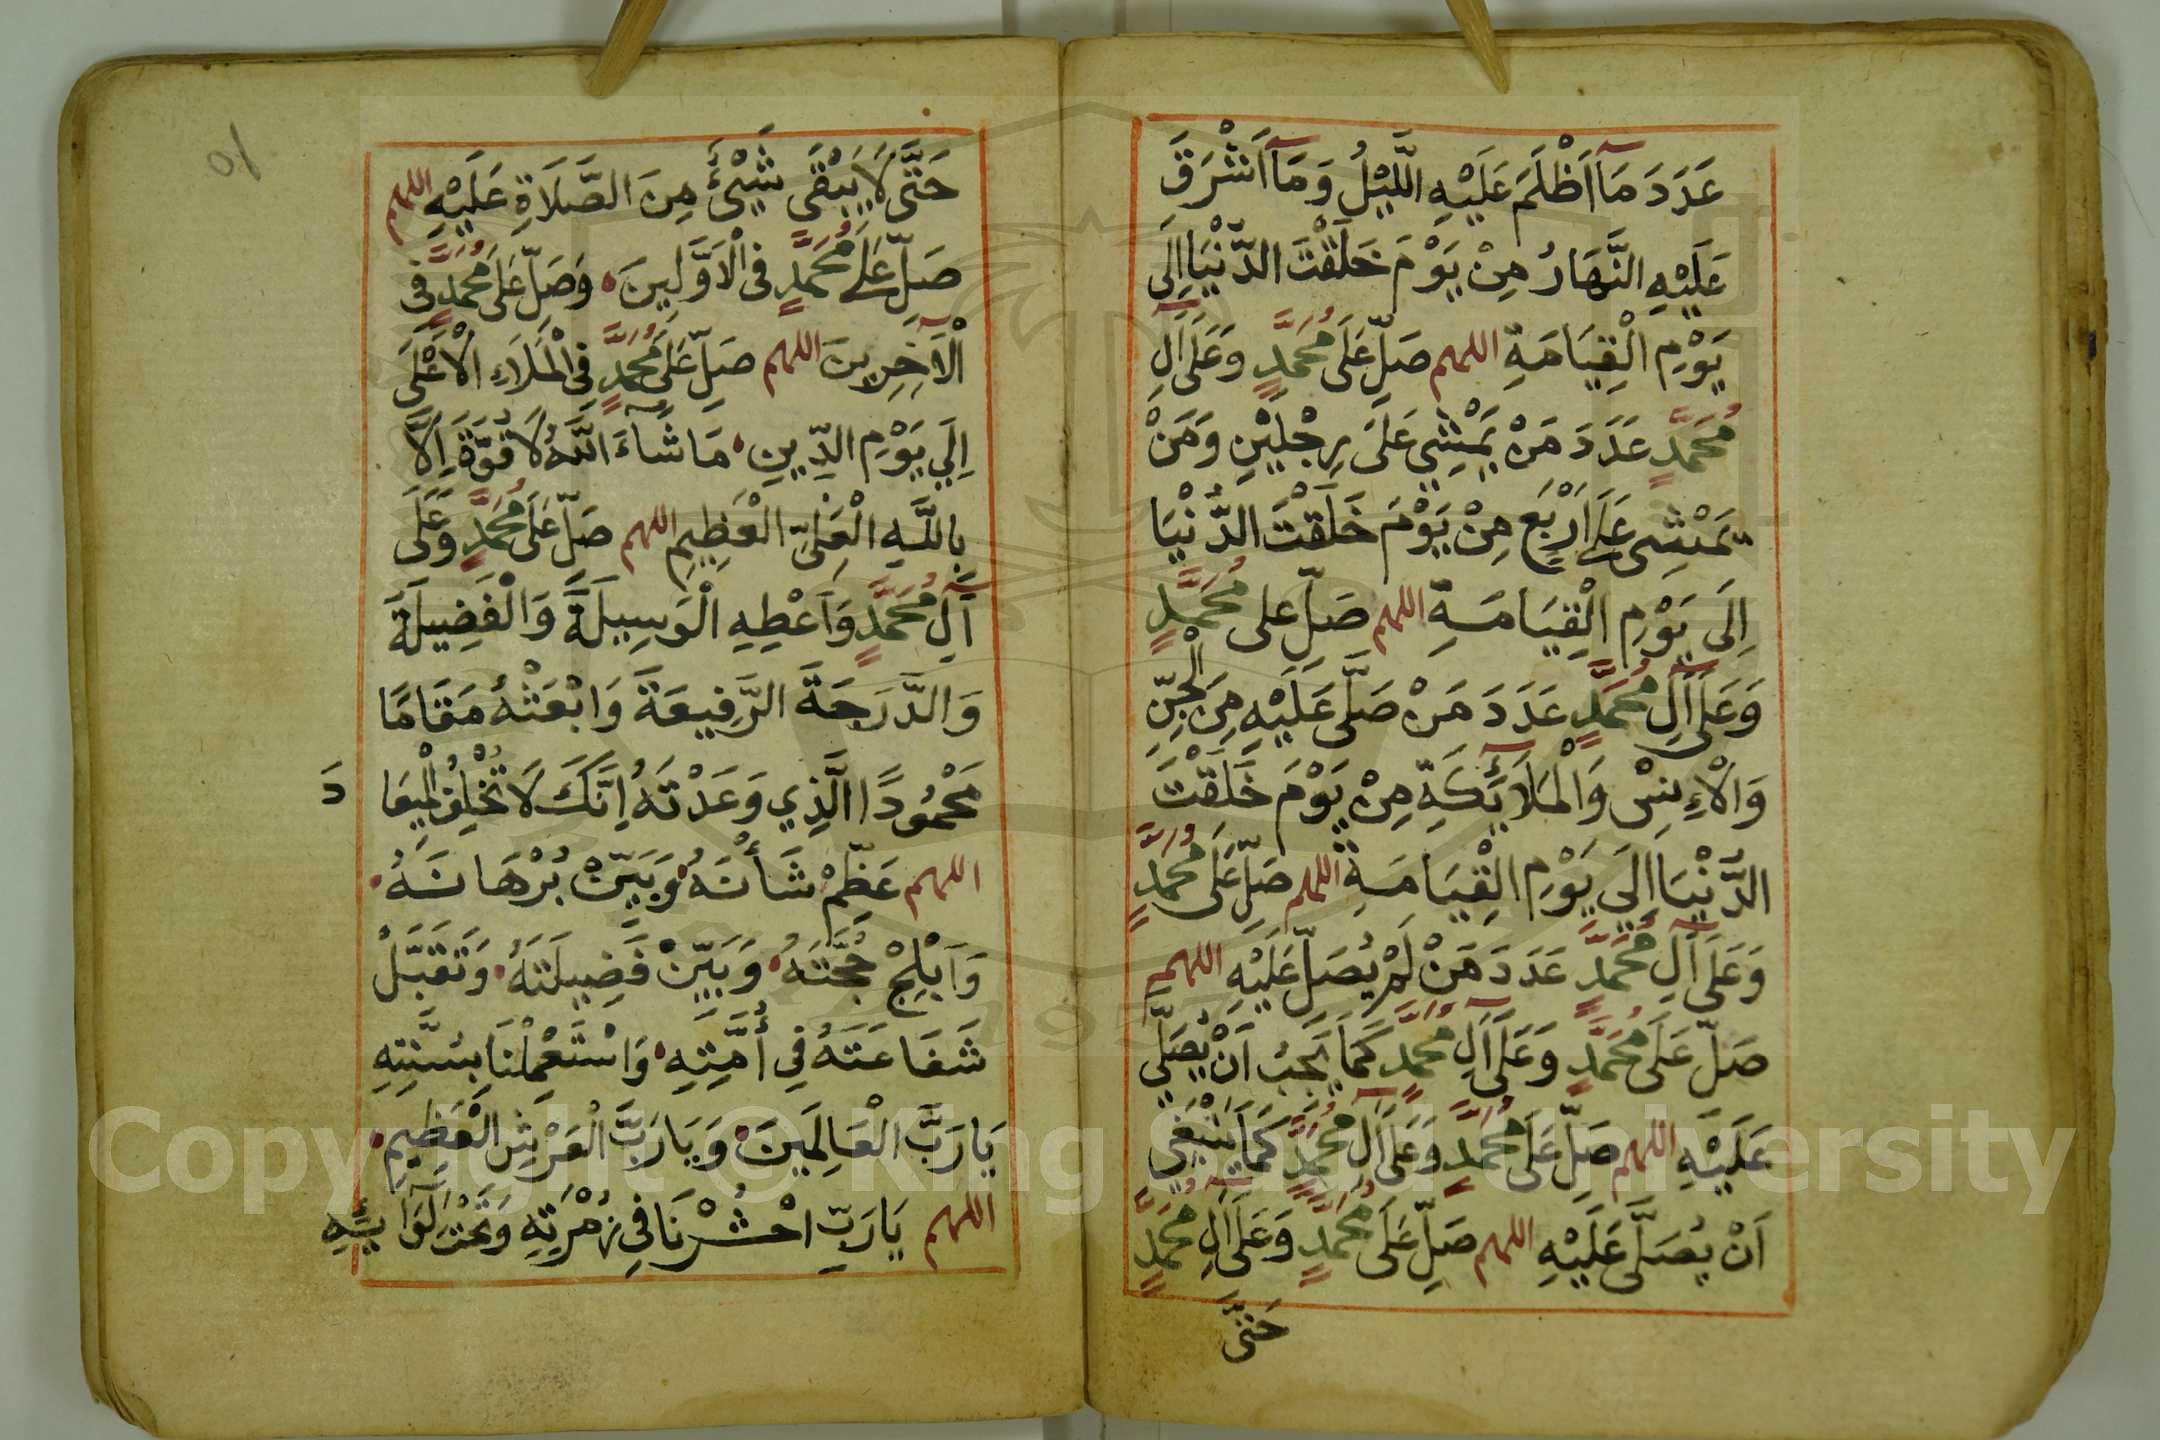 عَدَدَ مَآ اَظْلَمَ عَلَيْهِ الَّليْلُ وَمَآ اَشْرَقَ
عَلَيْهِ النَّهَارُ مِنْ يَوْمَ خَلَقْتَ الدُّنْيَا اِلَى
يَوْمِ الْقِيَامَةِ اللهم صَلِّ عَلَى مُحَمَّدٍ وَعَلَى آلِ
مُحَمَّدٍ عَدَدَ مَنْ يَمْشِي عَلَى رِجْلَيْنِ وَمَنْ
يَمْشِى عَلَى اَرْبَعٍ مِنْ يَوْمَ خَلَقْتَ الدُّنْيَا
اِلَى يَوْمِ الْقِيَامَةِ اللهم صَلِّ على مُحَمَّدٍ
وَعَلَى آلِ مُحَمَّدٍ عَدَدَ مَنْ صَلَّى عَلَيْهِ مِنَ الْجِنِّ
وَالْاِنِسْ وَالْمَلَآئِكَةِ مِنْ يَوْمَ خَلَقْتَ
الدُّنْيَا اِلَى يَوْمِ الْقِيَامَةِ اللهم صَلِّ عَلَى مُحَمَّدٍ
وَعَلَى آلِ مُحَمَّدٍ عَدَدَ مَنْ لَمْ يُصَلِّ عَلَيْهِ اللهم
صَلِّ عَلَى مُحَمَّدٍ وَعَلَى آلِ مُحَمَّدٍ كَمَا يَجِبُ اَنْ يُصَلَّى
عَلَيْهِ اللهم صَلِّ عَلَى مُحَمَّدٍ وَعَلَى آلِ مُحَمَّدٍ كَمَا يَنْبَغِي
اَنْ يُصَلَّى عَلَيْهِ اللهم صَلِّ عَلَى مُحَمَّدٍ وَعَلَى آلِ مُحَمَّدٍ
حَتَّى
١٥
حَتَّى لَا يَبْقَى شَيْئٌ مِنَ الصَّلَاةِ عَلَيْهِ اللهم
صَلِّ عَلَى مُحَمَّدٍ فى الْاَوَّلِينَ وَصَلِّ عَلَى مُحَمَّدٍ فِى
الْآخِرِينَ اللهم صَلِّ عَلَى مُحَمَّدٍ فِى الْمَلَاءِ الْاَعْلَى
اِلَي يَوْمِ الدِّينِ مَا شَآءَ اللَّهُ لَا قُوَّةَ اِلَّا
بِاللَّهِ الْعَلِىِّ الْعَظِيمِ اللهم صَلِّ عَلَى مُحَمَّدٍ وَعَلَى
آلِ مُحَمَّدٍ وَاَعْطِهِ الْوَسِيلَةَ وَالْفَضِيلَةَ
وَالدَّرَجَةَ الرَّفِيعَةَ وَابْعَثْهُ مَقَامًا
مَحْمُودًا الَّذِي وَعَدْتَهُ اِنَّكَ لَا تُخْلِفُ الْمِيعَا
دَ
اللهم عَظِّمْ شَأْنَهُ وَبَيِّنْ بُرْهَانَهُ
وَاَبْلِجْ حُجَّتَهُ وَبَيِّنْ فَضِيلَتَهُ وَتَقَبَّلْ
شَفَاعَتَهُ فِى أُمَّتِهِ وَاسْتَعْمِلْنَا بِسُنَّتِهِ
يَا رَبَّ الْعَالَمِينَ وَيَا رَبَّ الْعَرْشِ الْعَظِيمِ
اللهم يَا رَبِّ احْشُرْنَا فِى زُمْرَتِهِ وَتَحْتَ لِوَآئِهِ
Copyright © King Saud University
1957